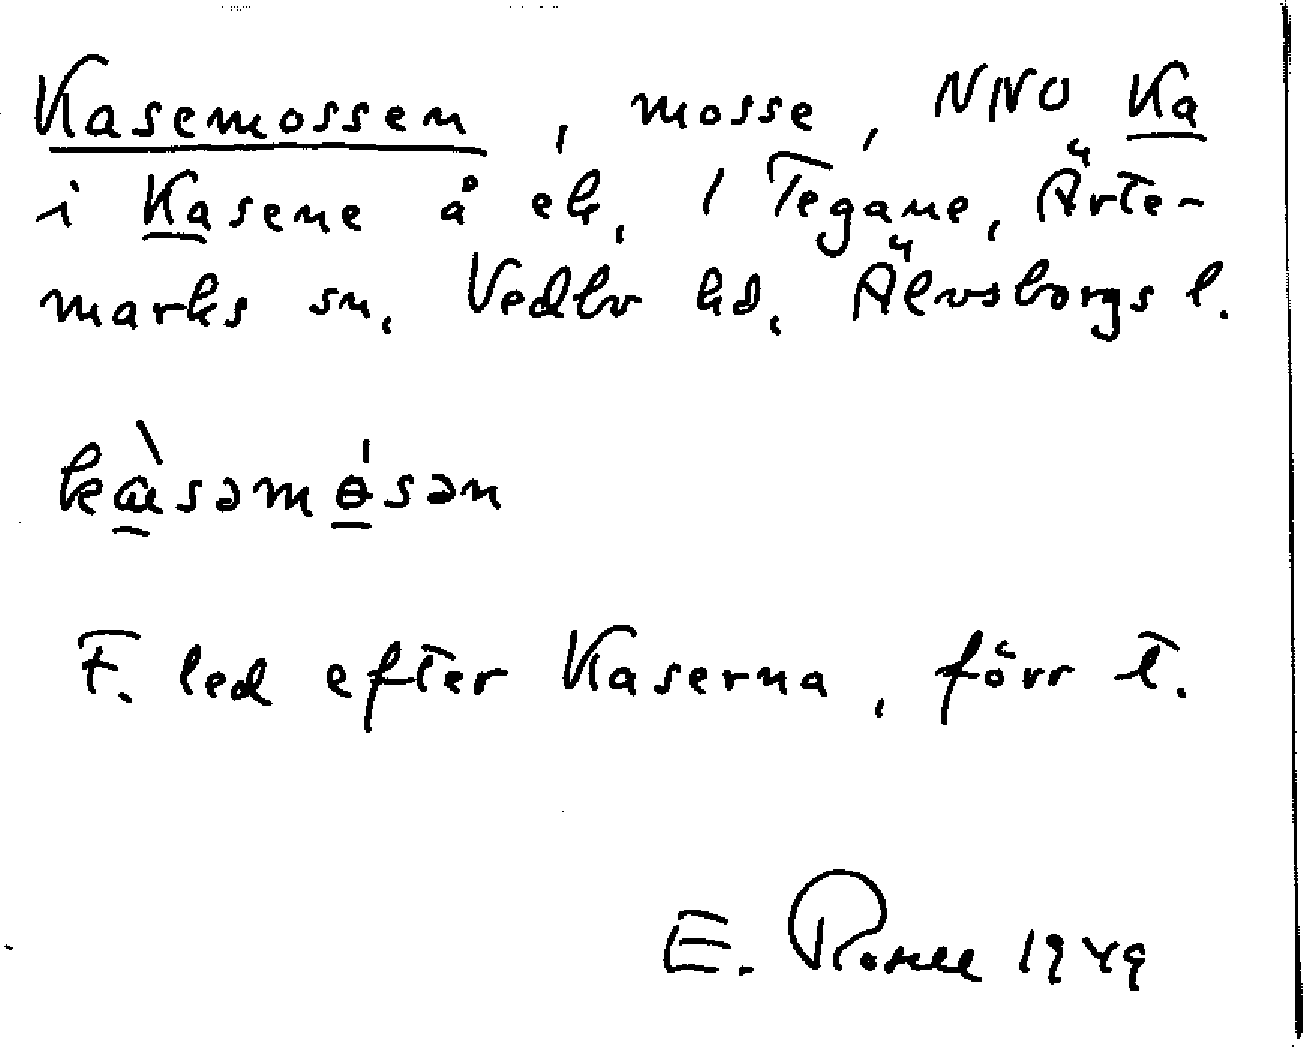 Kasemossen, mosse, NNO Ka
i Kasene å ek. 1 Tegane, Ärte-
marks sn, Vedbo hd, Älvsborgs l.
kàsəmɵ́sən
F. led efter Kaserna, förr t.
E. 1949